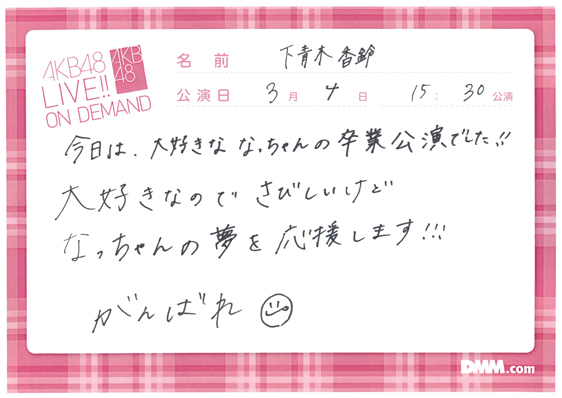 AKB48
LIVE!!
ON DEMAND
AKB
48
名前 下青木香鈴
公演日 3月4日 15:30公演
今日は、大好きな なっちゃんの卒業公演でした!!
大好きなので さびしいけど
なっちゃんの夢を応援します!!!
がんばれ
DMM.com